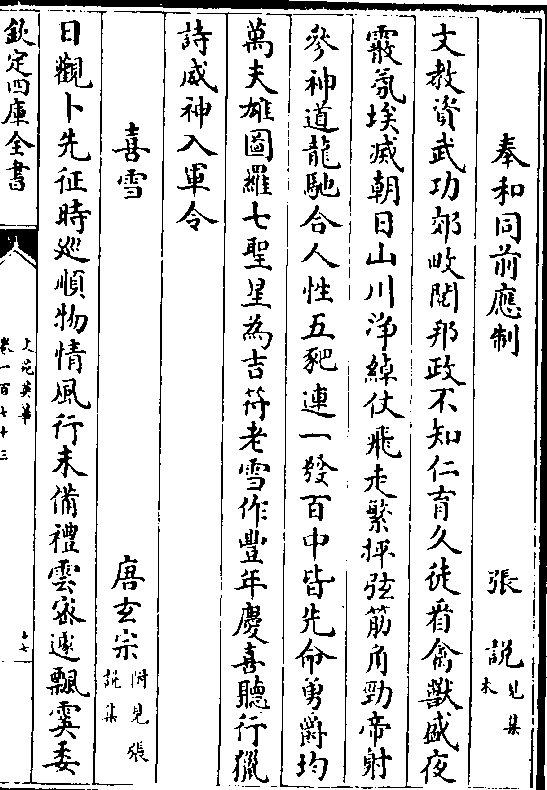 奉和同前應制　張說見集本
文教資武功郊畋閱邦政不知仁育久徒看禽獸盛夜
霰氛埃滅朝日山川淨綽仗飛走繁抨弦筋角勁帝射
參神道龍馳合人性五豝連一發百中皆先命勇爵均
萬夫雄圖羅七聖星為吉符老雪作豐年慶喜聽行獵
詩威神入軍令
喜雪　唐玄宗附見張說集
日觀卜先征時巡順物情風行未備禮雲密遽飄霙委
欽定四庫全書
文苑英華
卷一百七十三
十七